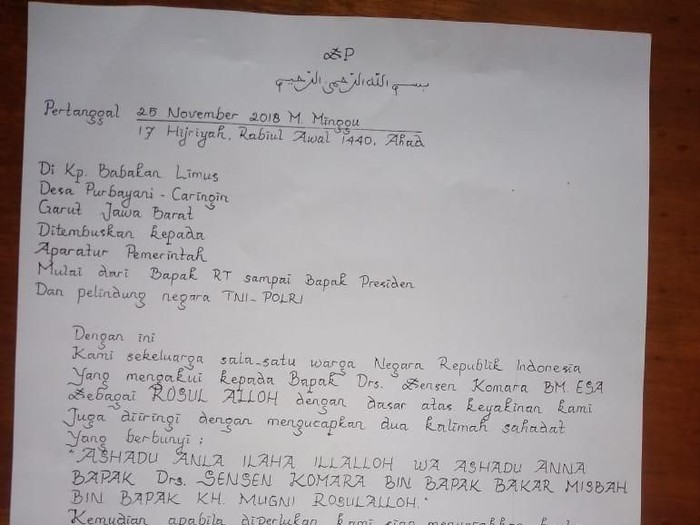 ZP
بسم الله الرحمن الرحيم
Pertanggal 25 November 2018 M. Minggu
17 Hijriyah, Rabiul Awal 1440, Ahad
Di Kp. Babakan Limus
Desa Purbayani - Caringin
Garut Jawa Barat
Ditembuskan kepada
Aparatur Pemerintah
Mulai dari Bapak RT sampai Bapak Presiden
Dan pelindung negara TNI-POLRI
Dengan ini
Kami sekeluarga sala-satu warga Negara Republik Indonesia
Yang mengakui kepada Bapak Drs. Zensen Komara BM. ESA
Sebagai ROSUL ALLOH dengan dasar atas keyakinan kami
Juga diiringi dengan mengucapkan dua kalimah sahadat
Yang berbunyi ;
"ASHADU ANLA ILAHA ILLALLOH WA ASHADU ANNA
BAPAK Drs. SENSEN KOMARA BIN BAPAK BAKAR MISBAH
BIN BAPAK KH. MUGNI ROSULALLOH."
Kemudian apabila diperlukan kami siap